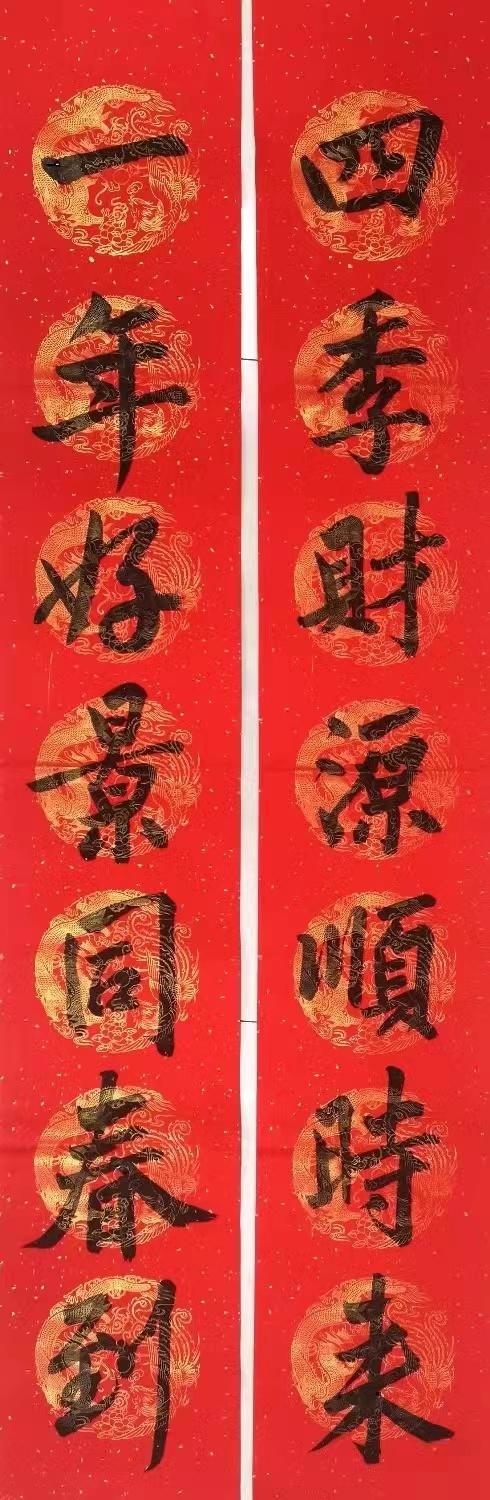 四季財源順時来
一年好景同春到